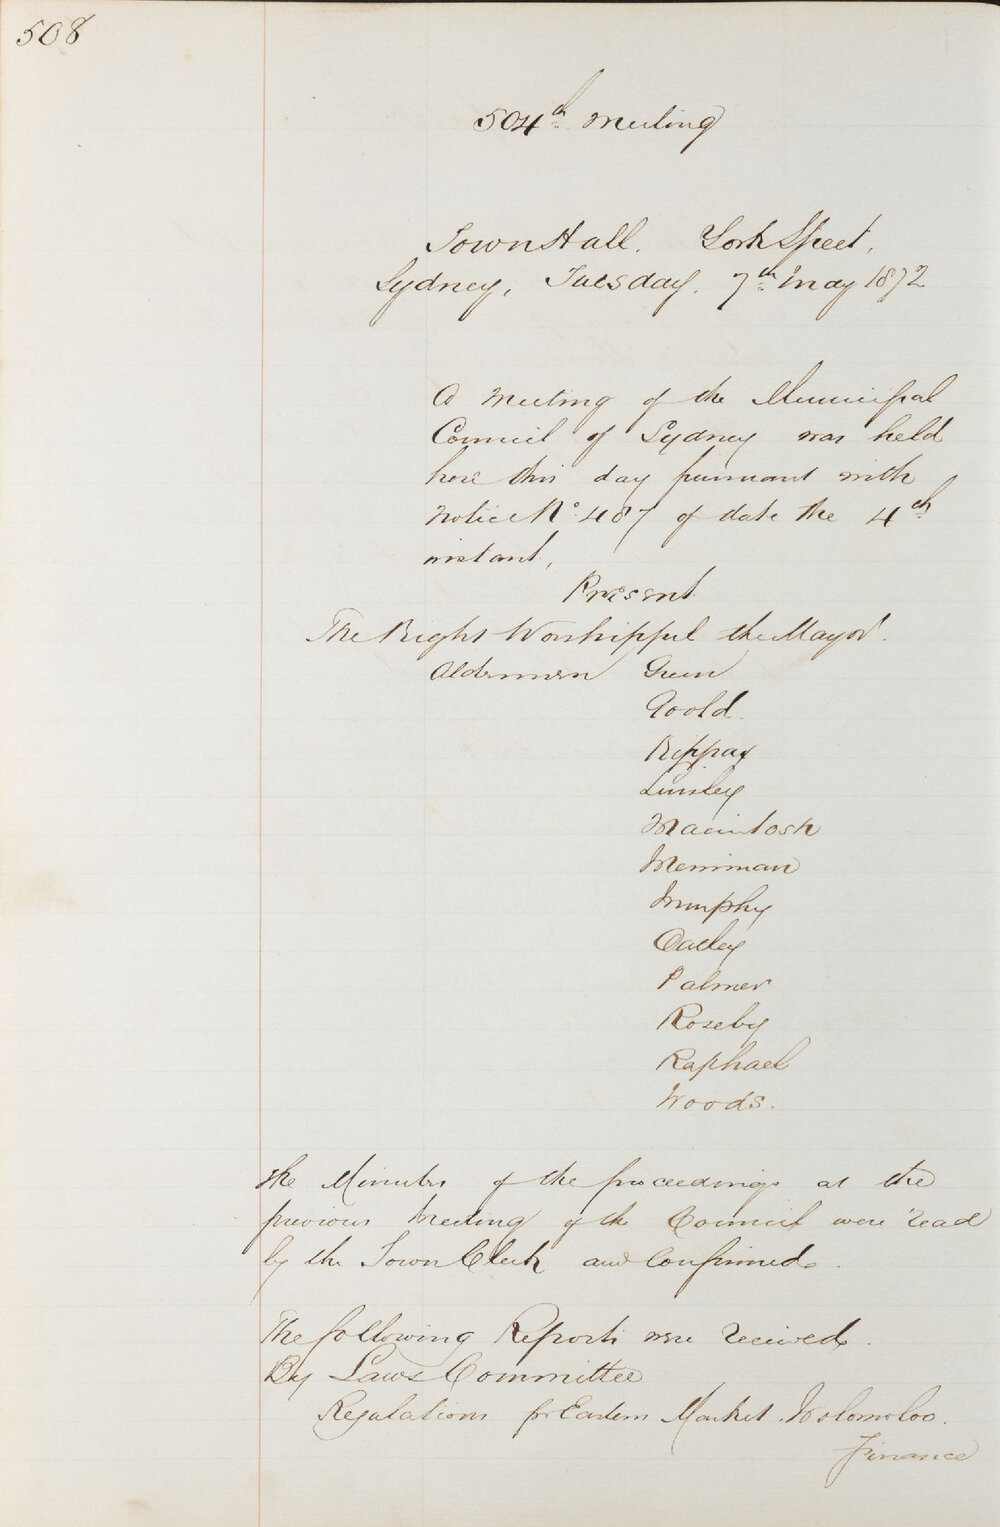 508
504th Meeting
Town Hall. York Street,
Sydney, Tuesday, 7th May 1872
A Meeting of the Municipal
Council of Sydney was held
here this day pursuant with
Notice No. 487 of date the 4th
instant,
Present
The Right Worshipful the Mayor.
Aldermen Green
Goold
Kippax
Linsley
Macintosh
Merriman
Murphy
Oatley
Palmer
Roseby
Raphael
Woods.
The Minutes of the proceedings at the
previous Meeting of the Council were read
by the Town Clerk and Confirmed.
The following Reports were received.
By Laws Committee
Regulations for Eastern Market Woolomoloo.
Finance